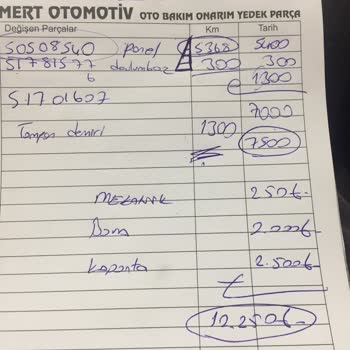 MERT OTOMOTİV OTO BAKIM ONARIM YEDEK PARÇA
Değişen Parçalar Km Tarih
50508540 panel 5368 5400
51781577 300 300
6 1300
51701607 7000
Tampon demiri 1300 7500
MEKANİK 250₺
Boya 2.000₺
Kaporta 2.500₺
12.250₺